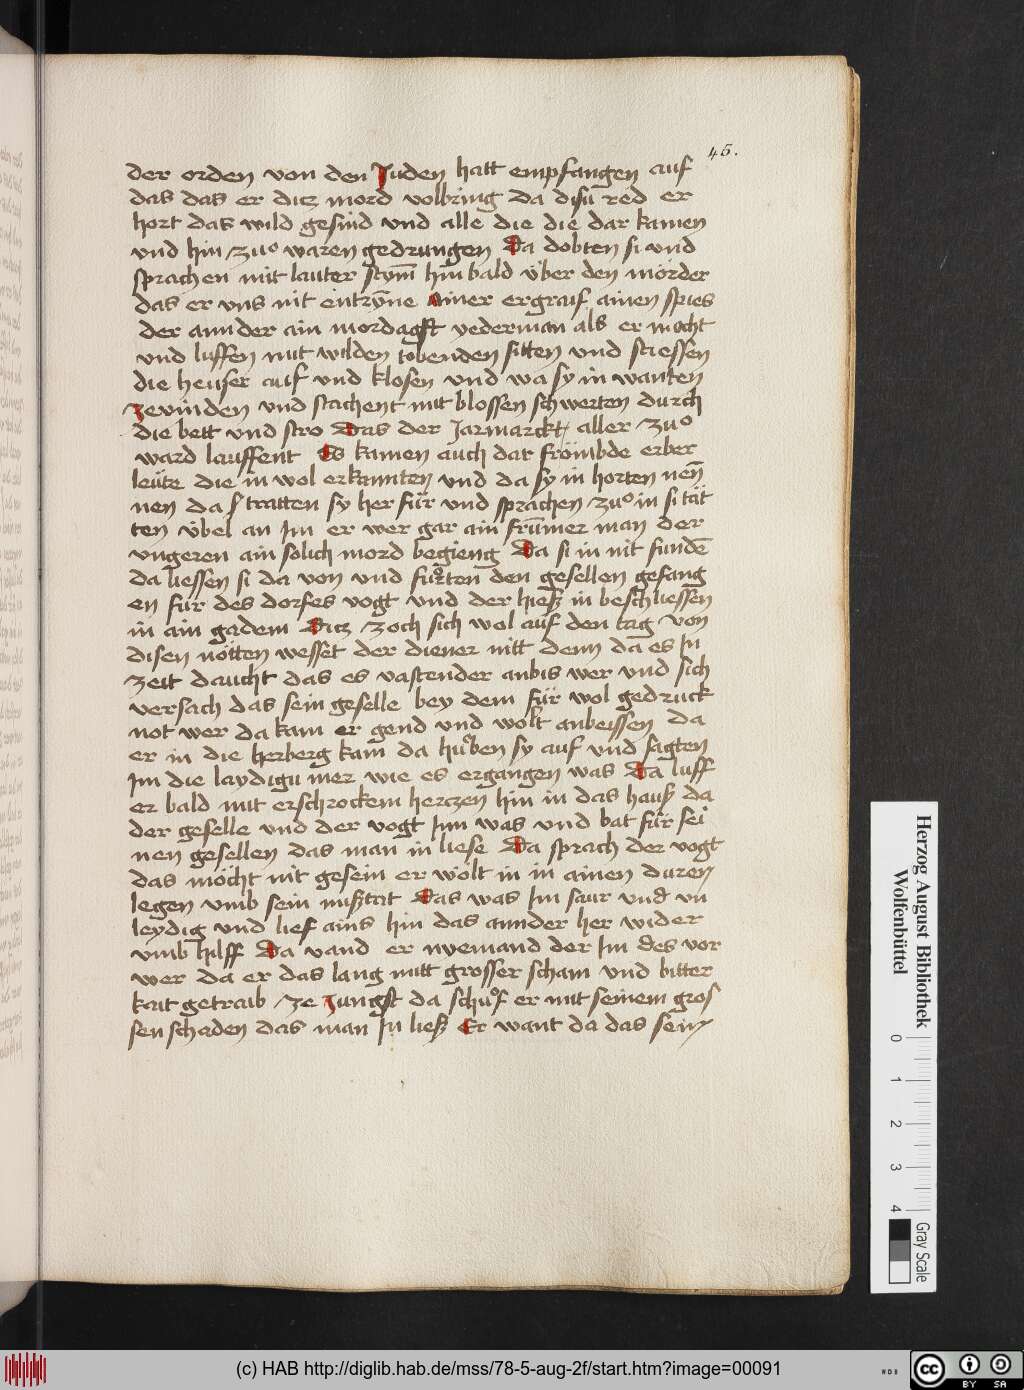 45.
der orden von den Juden hatt empfangen auf
das das er ditz mord volbring da disü red er
hort das wild gesind vnd alle die die dar kamen
vnd hin zuo waren gedrungen Da dobten si vnd
sprachen mit lauter stym̄ hin bald über den mörder
das er vns nit entryn̄e Ainer ergraif ainen spies
der annder ain mordagst yederman als er mocht
vnd luffen mit wilden tobenden sitten vnd stiessen
die heuser auf vnd klosen vnd wa sy in wanten
zevinden vnd stachent mit blossen schwerten durch
die bett vnd stro Das der Jarmarckt aller zuo
ward lauffent Es kamen auch dar frömbde erber
leüte die in wol erkannten vnd da sy in horten nen̄
nen da tratten sy her für vnd sprachen zuo in si tät
ten übel an Im er wer gar ain frümer man der
vngeren ain solich mord begieng Da si in nit fundē
da liessen si da von vnd fuorten den gesellen gefang
en für des dorfes vogt vnd der hiesz in beschliessen
in ain gadem Ditz zoch sich wol auf den tag von
disen nötten wesset der diener nitt denn da es In
zeit daucht das es vastender anbis wer vnd sich
versach das sein geselle bey dem für wol gedruck
not wer da kam er gend vnd wolt anbeissen da
er in die herberg kam da huoben sy auf vnd sagten
Im die laydigu mer wie es ergangen was Da luff
er bald mit erschrockem hertzen hin in das hausz da
der geselle vnd der vogt Inn was vnd bat für sei
nen gesellen das man in liese Da sprach der vogt
das möcht nit gesein er wölt in in ainen duren
legen vmb sein misztat Das was Im saur vnd vn
leydig vnd lief ains hin das annder her wider
vmb hilff Da vand er nyemand der Im des vor
wer da er das lang mitt grosser scham vnd bitter
kait getraib ze Jungst da schuof er mit seinem gros
sen schaden das man In liesz Er want da das sein
Herzog August Bibliothek
Wolfenbüttel
0 1 2 3 4
Gray Scale
(c) HAB http://diglib.hab.de/mss/78-5-aug-2f/start.htm?image=00091
WDB
cc BY SA